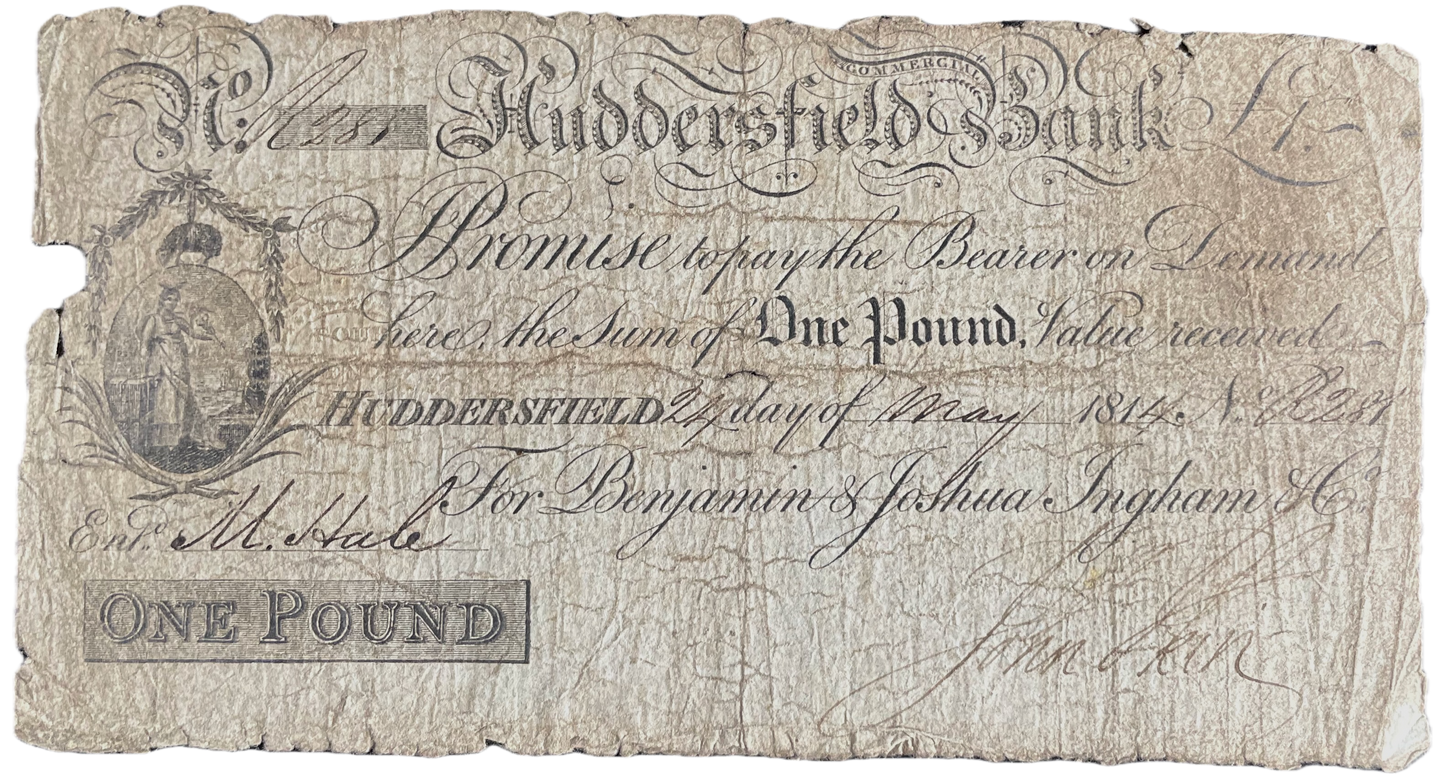 No. 281 Huddersfield COMMERCIAL Bank £1
I Promise to pay the Bearer on Demand
here, the Sum of One Pound, Value received
HUDDERSFIELD 24 day of May 1814. No. 281
For Benjamin & Joshua Ingham & Co.
Entd. M. Hale
ONE POUND
John